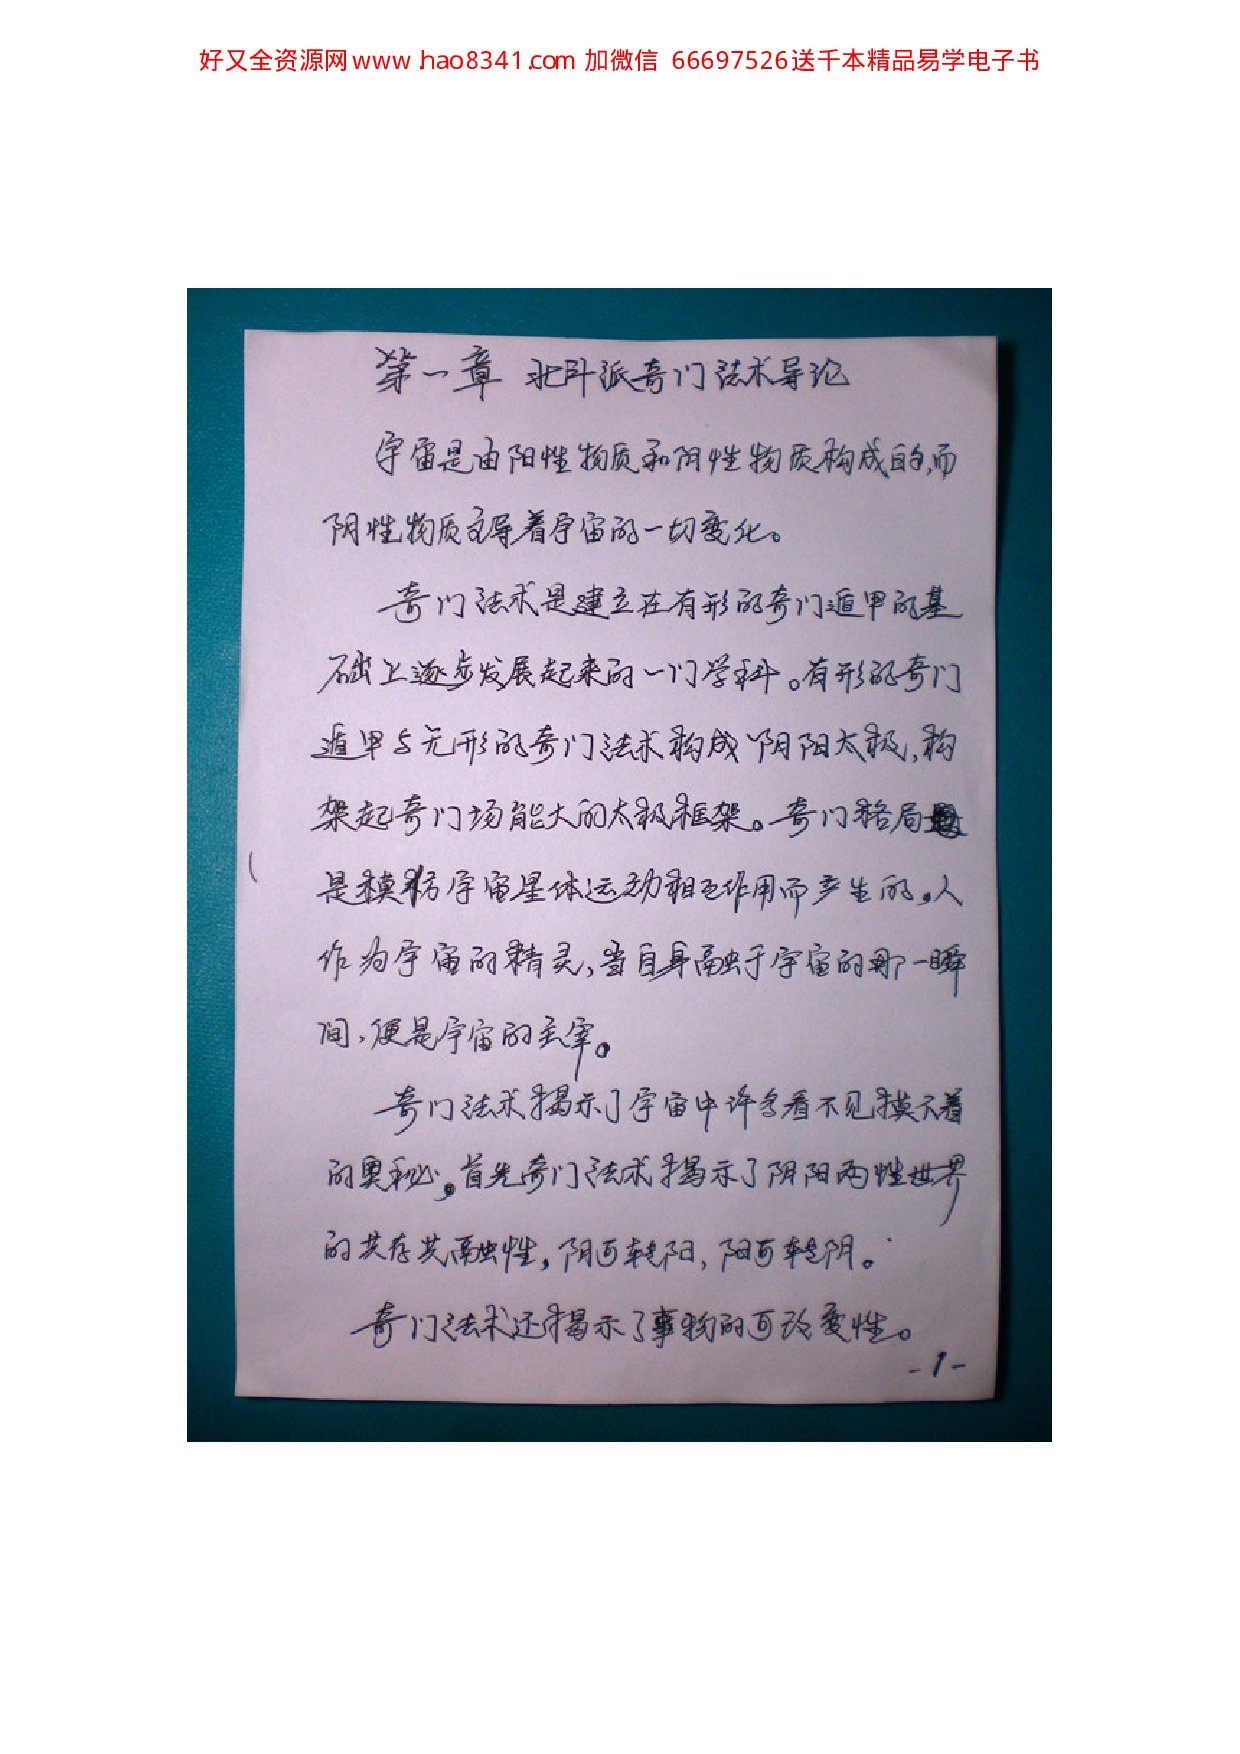 好又全资源网www.hao8341.com 加微信 66697526送千本精品易学电子书
第一章 北斗派奇门法术导论
宇宙是由阳性物质和阴性物质构成的,而
阴性物质主导着宇宙的一切变化。
奇门法术是建立在有形的奇门遁甲的基
础上逐步发展起来的一门学科。有形的奇门
遁甲与无形的奇门法术构成阴阳太极,构
架起奇门场能大的太极框架。奇门格局
是模仿宇宙星体运动相互作用而产生的。人
作为宇宙的精灵,当自身融于宇宙的那一瞬
间,便是宇宙的主宰。
奇门法术揭示了宇宙中许多看不见摸不着
的奥秘。首先奇门法术揭示了阴阳两性世界
的共存共融性,阴可转阳,阳可转阴。
奇门法术还揭示了事物的可改变性。
-1-